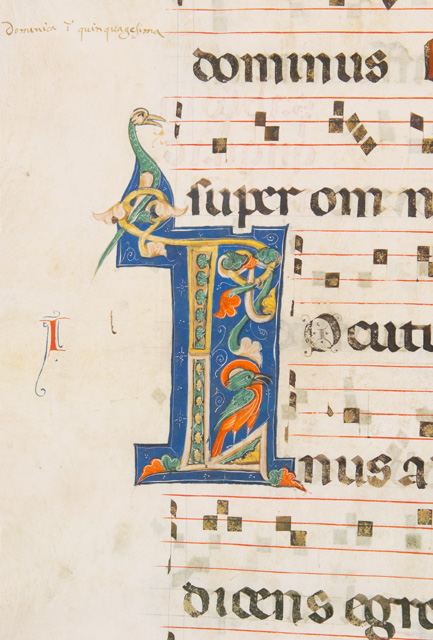 Dominica ī quinquagesima
dominus
super om n
Locutu
nus a
dicens egre